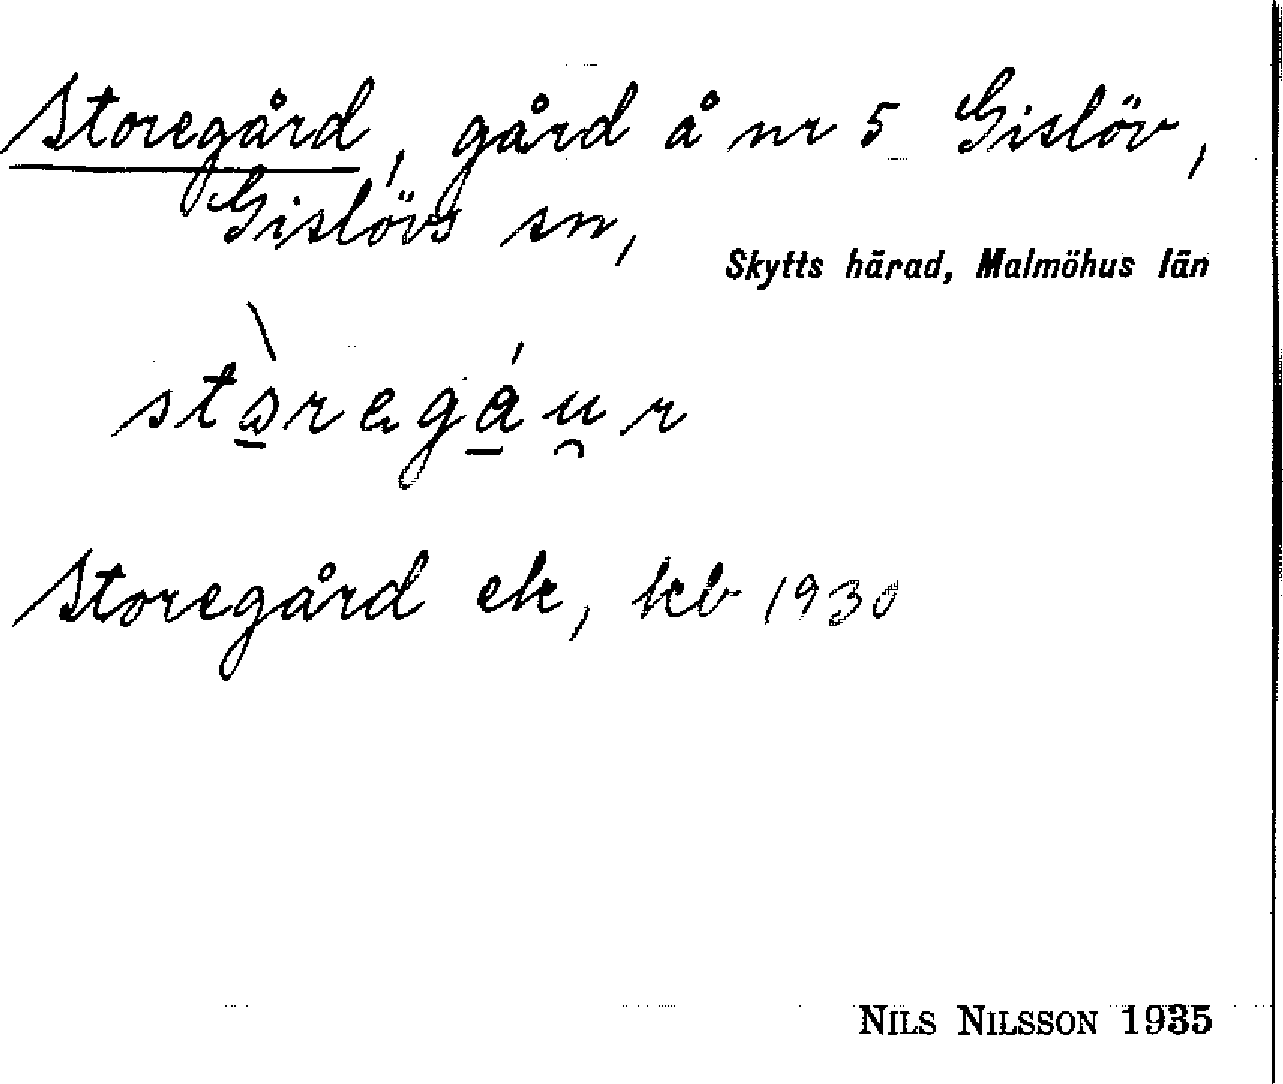 Storegård, gård å nr 5 Gislöv,
Gislövs sn,
Skytts härad, Malmöhus län
Storegård ek, kb 1930
NILS NILSSON 1935